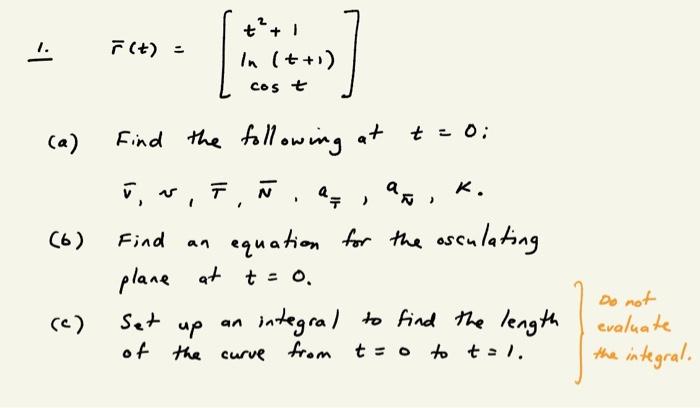 1. r̄(t) = [ t² + 1
ln (t+1)
cos t ]
(a) Find the following at t = 0:
v̄, v, T̄, N̄, a_T̄, a_N̄, K.
(b) Find an equation for the osculating
plane at t = 0.
(c) Set up an integral to find the length
of the curve from t = 0 to t = 1.
Do not
evaluate
the integral.